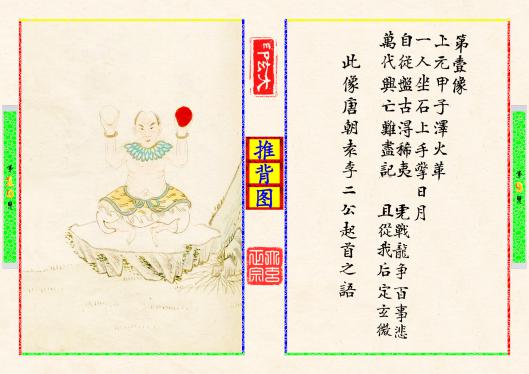 第壹像
上元甲子澤火革
一人坐石上手擎日月
自從盤古淂稀夷 虎戰龍争百事悲
萬代興亡難盡記 且從我后定玄微
此像唐朝袁李二公起首之語
推
背
图